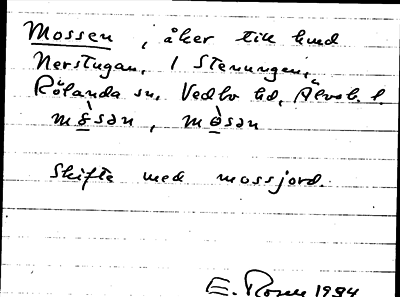 Mossen, åker till hmd
Nerstugan, 1 Stenungen,
Rölanda sn, Vedbo hd, Älvsb. l.
mòsən, mòsən
Skifte med mossjord.
E. Rosen 1934